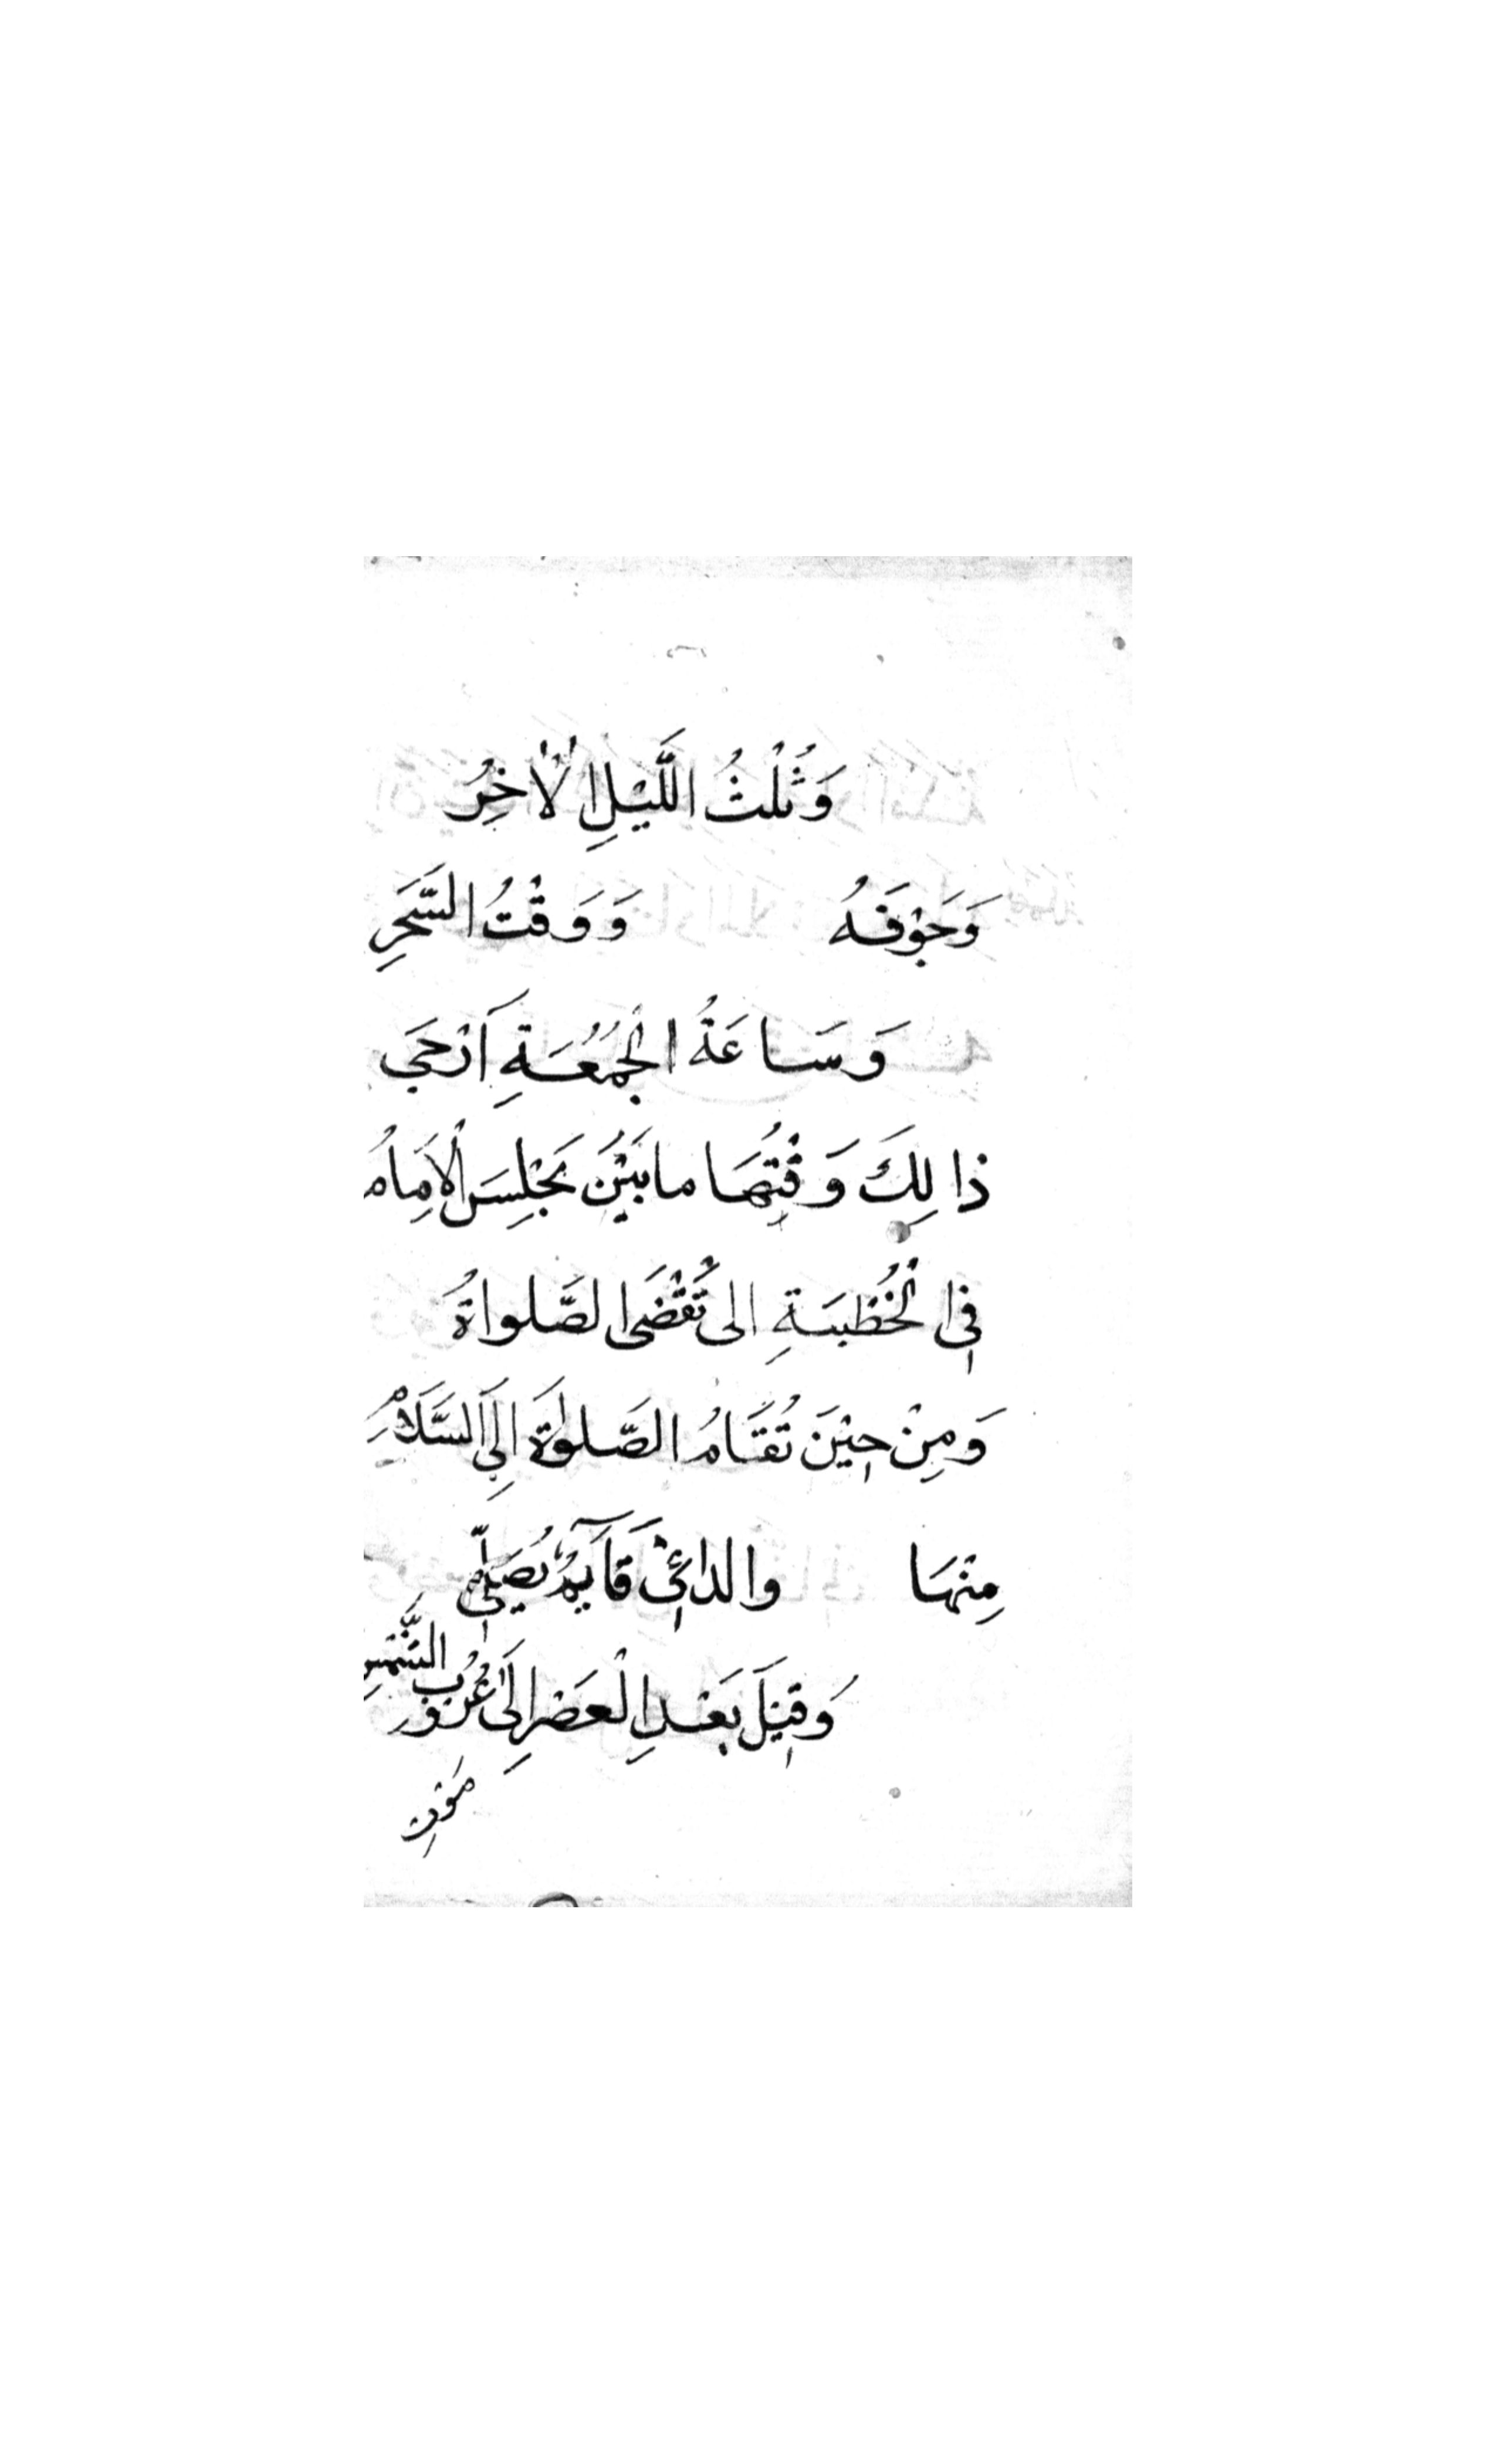 وَثُلْثُ اللَّيْلِ الْاٰخِرُ
وَجَوْفَهُ وَوَقْتُ السَّحَرِ
وَسَاعَةُ الْجُمُعَةِ اَرْجَى
ذالِكَ وَقْتُهَا مابَيْنَ يَجْلِسَ الْاِمَامُ
فِى الْخُطْبَةِ الى تُقْضَى الصَّلواةُ
وَمِنْ حِيْنَ تُقَامُ الصَّلٰوةَ اِلَى السَّلَامِ
مِنْهَا والداعِىْ قَآيِمٌ يُصَلِّى
وَقِيْلَ بَعْدِ الْعَصْرِ اِلَى غُرُوْبِ الشَّمْسِ